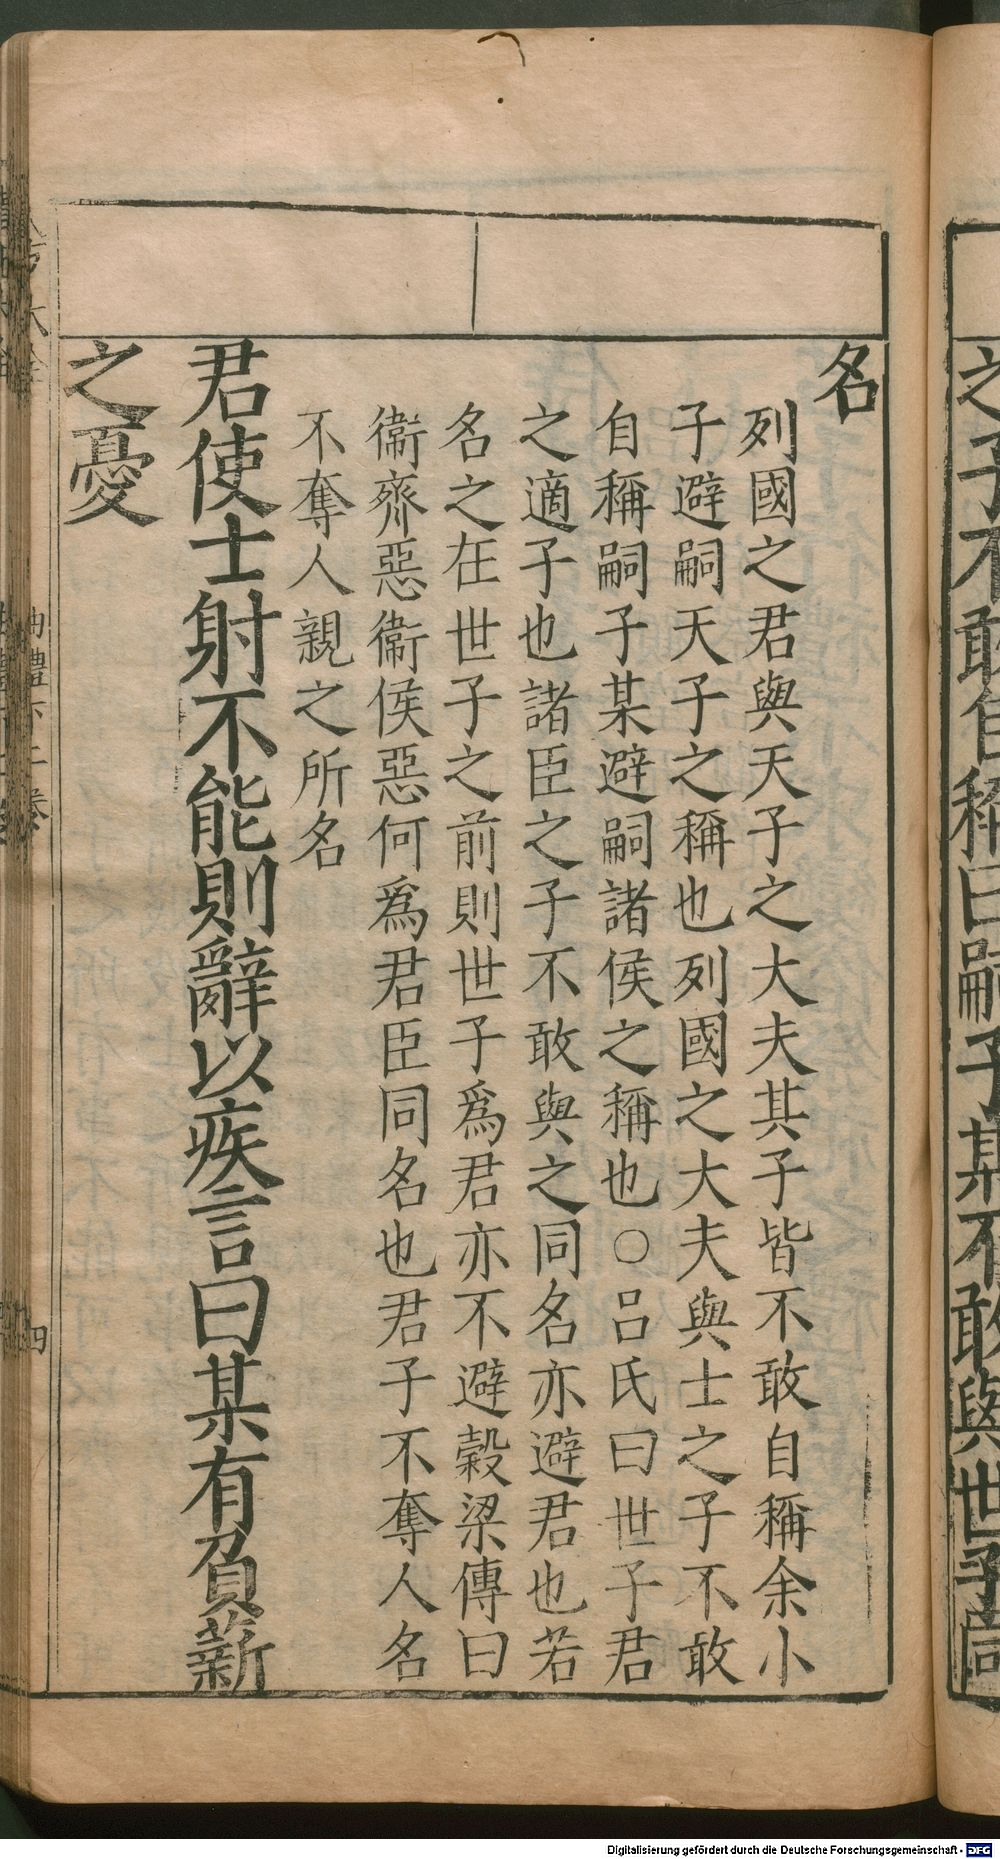 名
列國之君與天子之大夫其子皆不敢自稱余小
子避嗣天子之稱也列國之大夫與士之子不敢
自稱嗣子某避嗣諸侯之稱也○呂氏曰世子君
之適子也諸臣之子不敢與之同名亦避君也若
名之在世子之前則世子爲君亦不避穀梁傳曰
衞齊惡衞侯惡何爲君臣同名也君子不奪人名
不奪人親之所名
君使士射不能則辭以疾言曰某有負薪
之憂
Digitalisierung gefördert durch die Deutsche Forschungsgemeinschaft - DFG